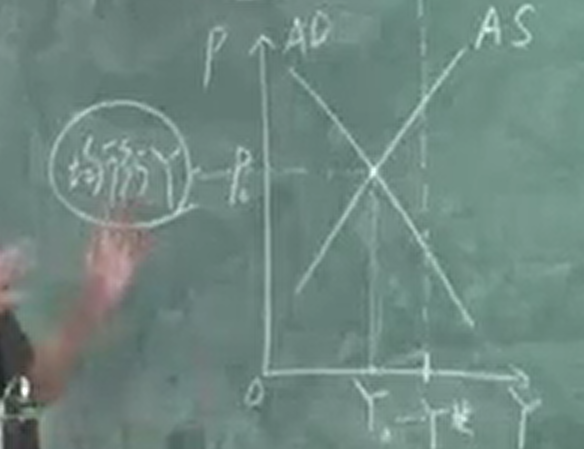 P AD AS
均衡Y P₀
O Y₀ Y* Y